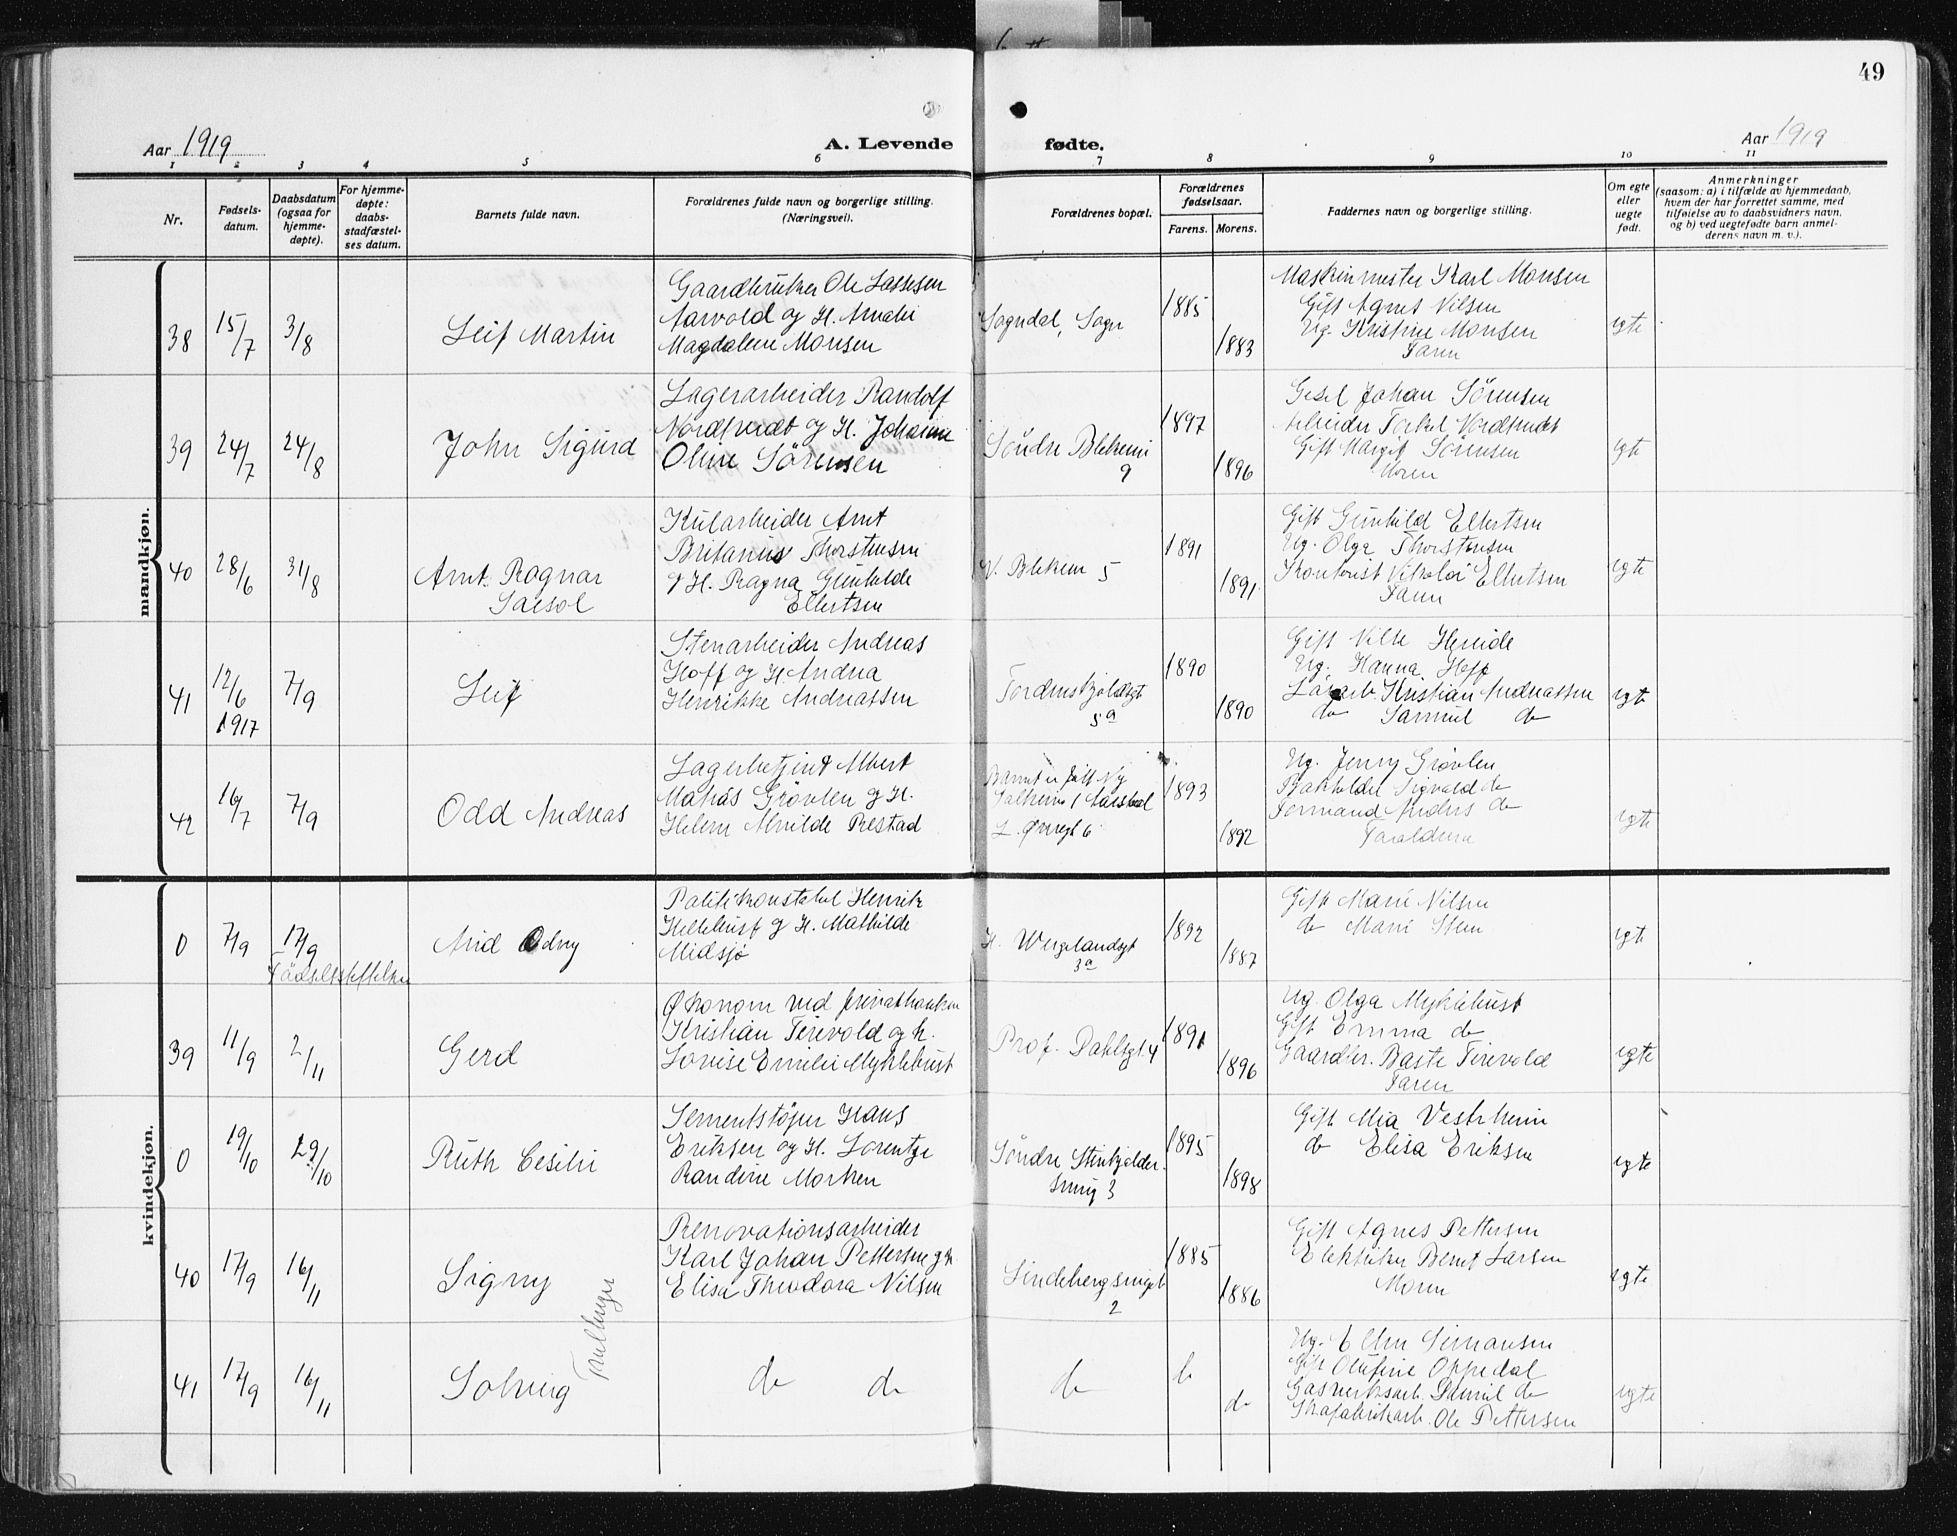 49
Aar 1919
A. Levende fødte.
Aar 1919
1 2 3 4 5 6 7 8 9 10 11
Nr.
Fødsels-
datum.
Daabsdatum
(ogsaa for
hjemme-
døpte).
For hjemme-
døpte:
daabs-
stadfæstel-
ses datum.
Barnets fulde navn.
Forældrenes fulde navn og borgerlige stilling.
(Næringsvei).
Forældrenes bopæl.
Forældrenes
fødselsaar.
Farens. Morens.
Faddernes navn og borgerlige stilling.
Om egte
eller
uegte
født.
Anmerkninger
(saasom: a) i tilfælde av hjemmedaab,
hvem der har forrettet samme, med
tilføielse av to daabsvidners navn,
og b) ved uegtefødte barn anmel-
derens navn m. v.).
mandkjøn.
38
15/7
3/8
Leif Martin
Gaardbruker Ole Lassesen
Aarvold og H. Amalie
Magdalene Monsen
Sogndal, Sogn
1885
1883
Maskinmester Karl Monsen
Gift Agnes Nilsen
Ug. Kristine Monsen
Faren
egte
39
24/7
24/8
John Sigurd
Lagerarbeider Randolf
og H. Johanne
Oline Sörensen
Söndre Blekevei
9
1897
1896
Johan Sörensen
Arbeider Torkel
Gift Margit Sörensen
Moren
egte
40
28/6
31/8
Arnt Ragnar
Kularbeider Arnt
Britanius Thorstensen
og H. Ragna Gunhilde
Ellertsen
V. Blekevei 5
1891
1891
Gift Gunhild Ellertsen
Ug. Olga Thorstensen
Kontorist Nikolai Ellertsen
Faren
egte
41
12/6
1917
7/9
Leif
Stenarbeider Andreas
Hoff og H. Andrea
Henrikke Andreassen
Tordenskjoldsgt
5a
1890
1890
Gift
Ug. Hanna Hoff
Kristian Andreassen
do Samuel do
egt
42
16/7
7/9
Odd Andreas
Lagerbetjent Albert
Matias Grövlen og H.
Helene Alvilde Restad
Barnet er født Ny
L. Øvregt 6
1893
1892
Ug. Jenny Grövlen
Sigvald do
Formand Anders do
Forældrene
egte
kvindekjøn.
0
7/9
17/9
Födselsstiftelsen
Arid Odny
Politikonstabel Henrik
Hellebust og H. Mathilde
Midsjö
H. Wergelandsgt
3a
1892
1887
Gift Marie Nilsen
do Marie Steen
egte
39
11/9
2/11
Gerd
Økonom ved privatbanken
Kristian Tirevold og h.
Lovise Emilie Myklebust
Prof. Dahlsgt. 4
1891
1896
Ug. Olga Myklebust
Gift Emma do
Gaardbr. Baste Tirevold
Faren
egte
0
19/10
29/10
Ruth Cesilie
Sementstöper Hans
Eriksen og H. Lorentze
Randine Morken
Söndre Stenkjelder-
smug 3
1895
1898
Gift Mia Vestrheim
do Elisa Eriksen
egte
40
17/9
16/11
Signy
Renovationsarbeider
Karl Johan Pettersen og h.
Elisa Theodora Nilsen
Lindebergsmuget
2
1885
1886
Gift Agnes Pettersen
Elektriker Bernt Larsen
Moren
egte
Tvillinger
41
17/9
16/11
Solveig
do do
do
do
do
Ug. Ellen Simonsen
Gift Olufine Oppedal
Gasverksarb. Daniel do
Skofabrikarb. Ole Pettersen
egte